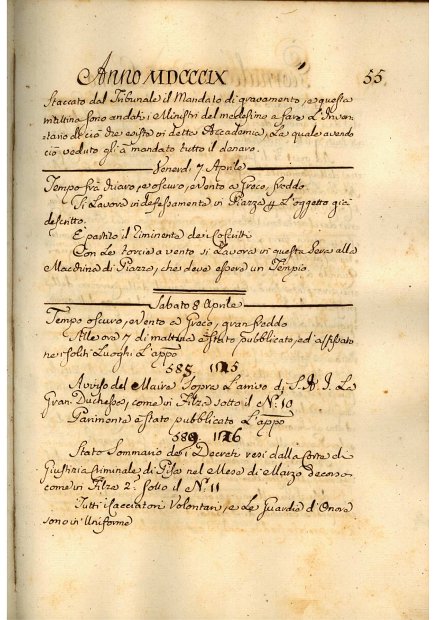 Anno MDCCCIX 55.
Staccato dal Tribunale il Mandato di gravamento, e questa
mattina sono andati i Ministri del medesimo a fare l'Inven-
tario di ciò che esiste in detta Accademia, la quale avendo
ciò veduto gli à mandato tutto il denaro.
Venerdì 7 Aprile
Tempo frà chiaro, e oscuro, e vento a Greco, freddo.
Si Lavora indefessamente in Piazza l'oggetto già
descritto.
È partito il rimanente dei Coscritti
Con le torcie a vento si Lavora in questa Sera alla
Macchina di Piazza, che deve essere un Tempio.
Sabato 8 Aprile
Tempo oscuro, e vento a Greco, gran freddo
Alle ore 7 di mattina è stato pubblicato, ed affissato
nei soliti Luoghi L'app.º
585
Avviso del Maire sopra L'arrivo di S. A. I. La
Gran Duchessa, come in Filza sotto il N.º 10
Parimente è stato pubblicato L'app.º
Stato Sommario dei Decreti resi dalla Corte di
Giustizia Criminale di Pisa nel Mese di Marzo decorso
come in Filza 2.ª sotto il N.º 11
Tutti i Cacciatori Volontari, e Le Guardie d'Onore
sono in Uniforme